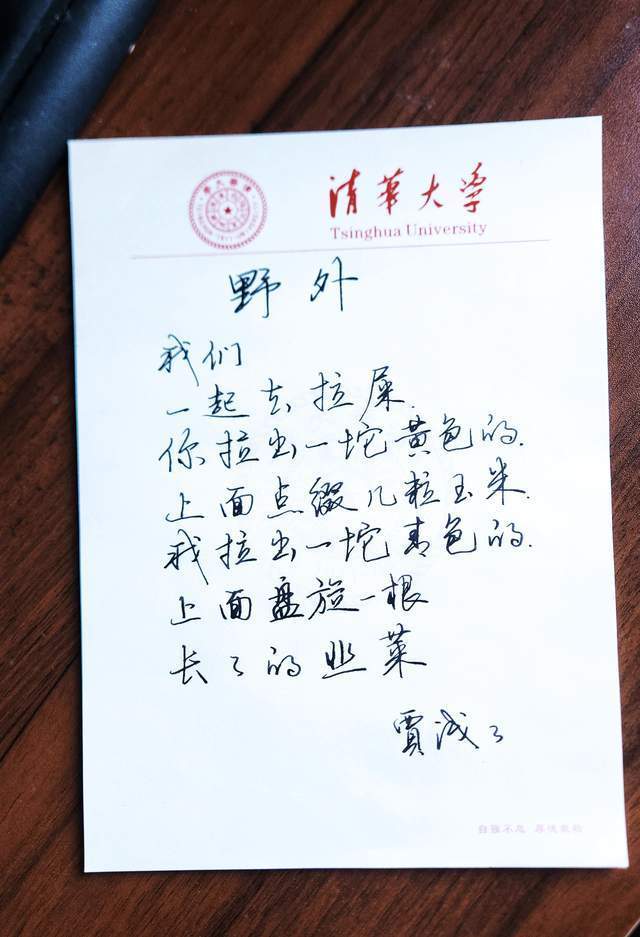 清華大学
Tsinghua University
野外
我们
一起去拉屎.
你拉出一坨黄色的.
上面点缀几粒玉米.
我拉出一坨青色的.
上面盘旋一根
长々的韭菜
賈浅々
自强不息 厚德载物